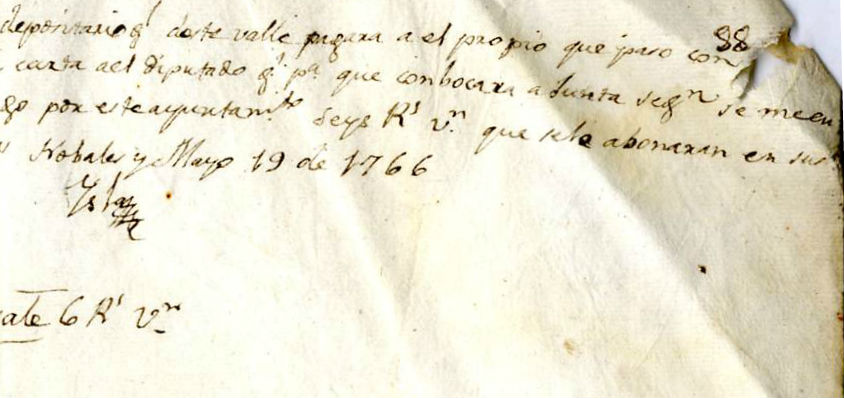 depositario gl deste valle pagara a el propio que paso con
88
carta ael Diputado gl pa que conbocara a Junta segn se me en
go por este ayuntamto Seys Rs vn que sele abonaran en sus
Nobales y Mayo 19 de 1766
ate 6 Rs vn